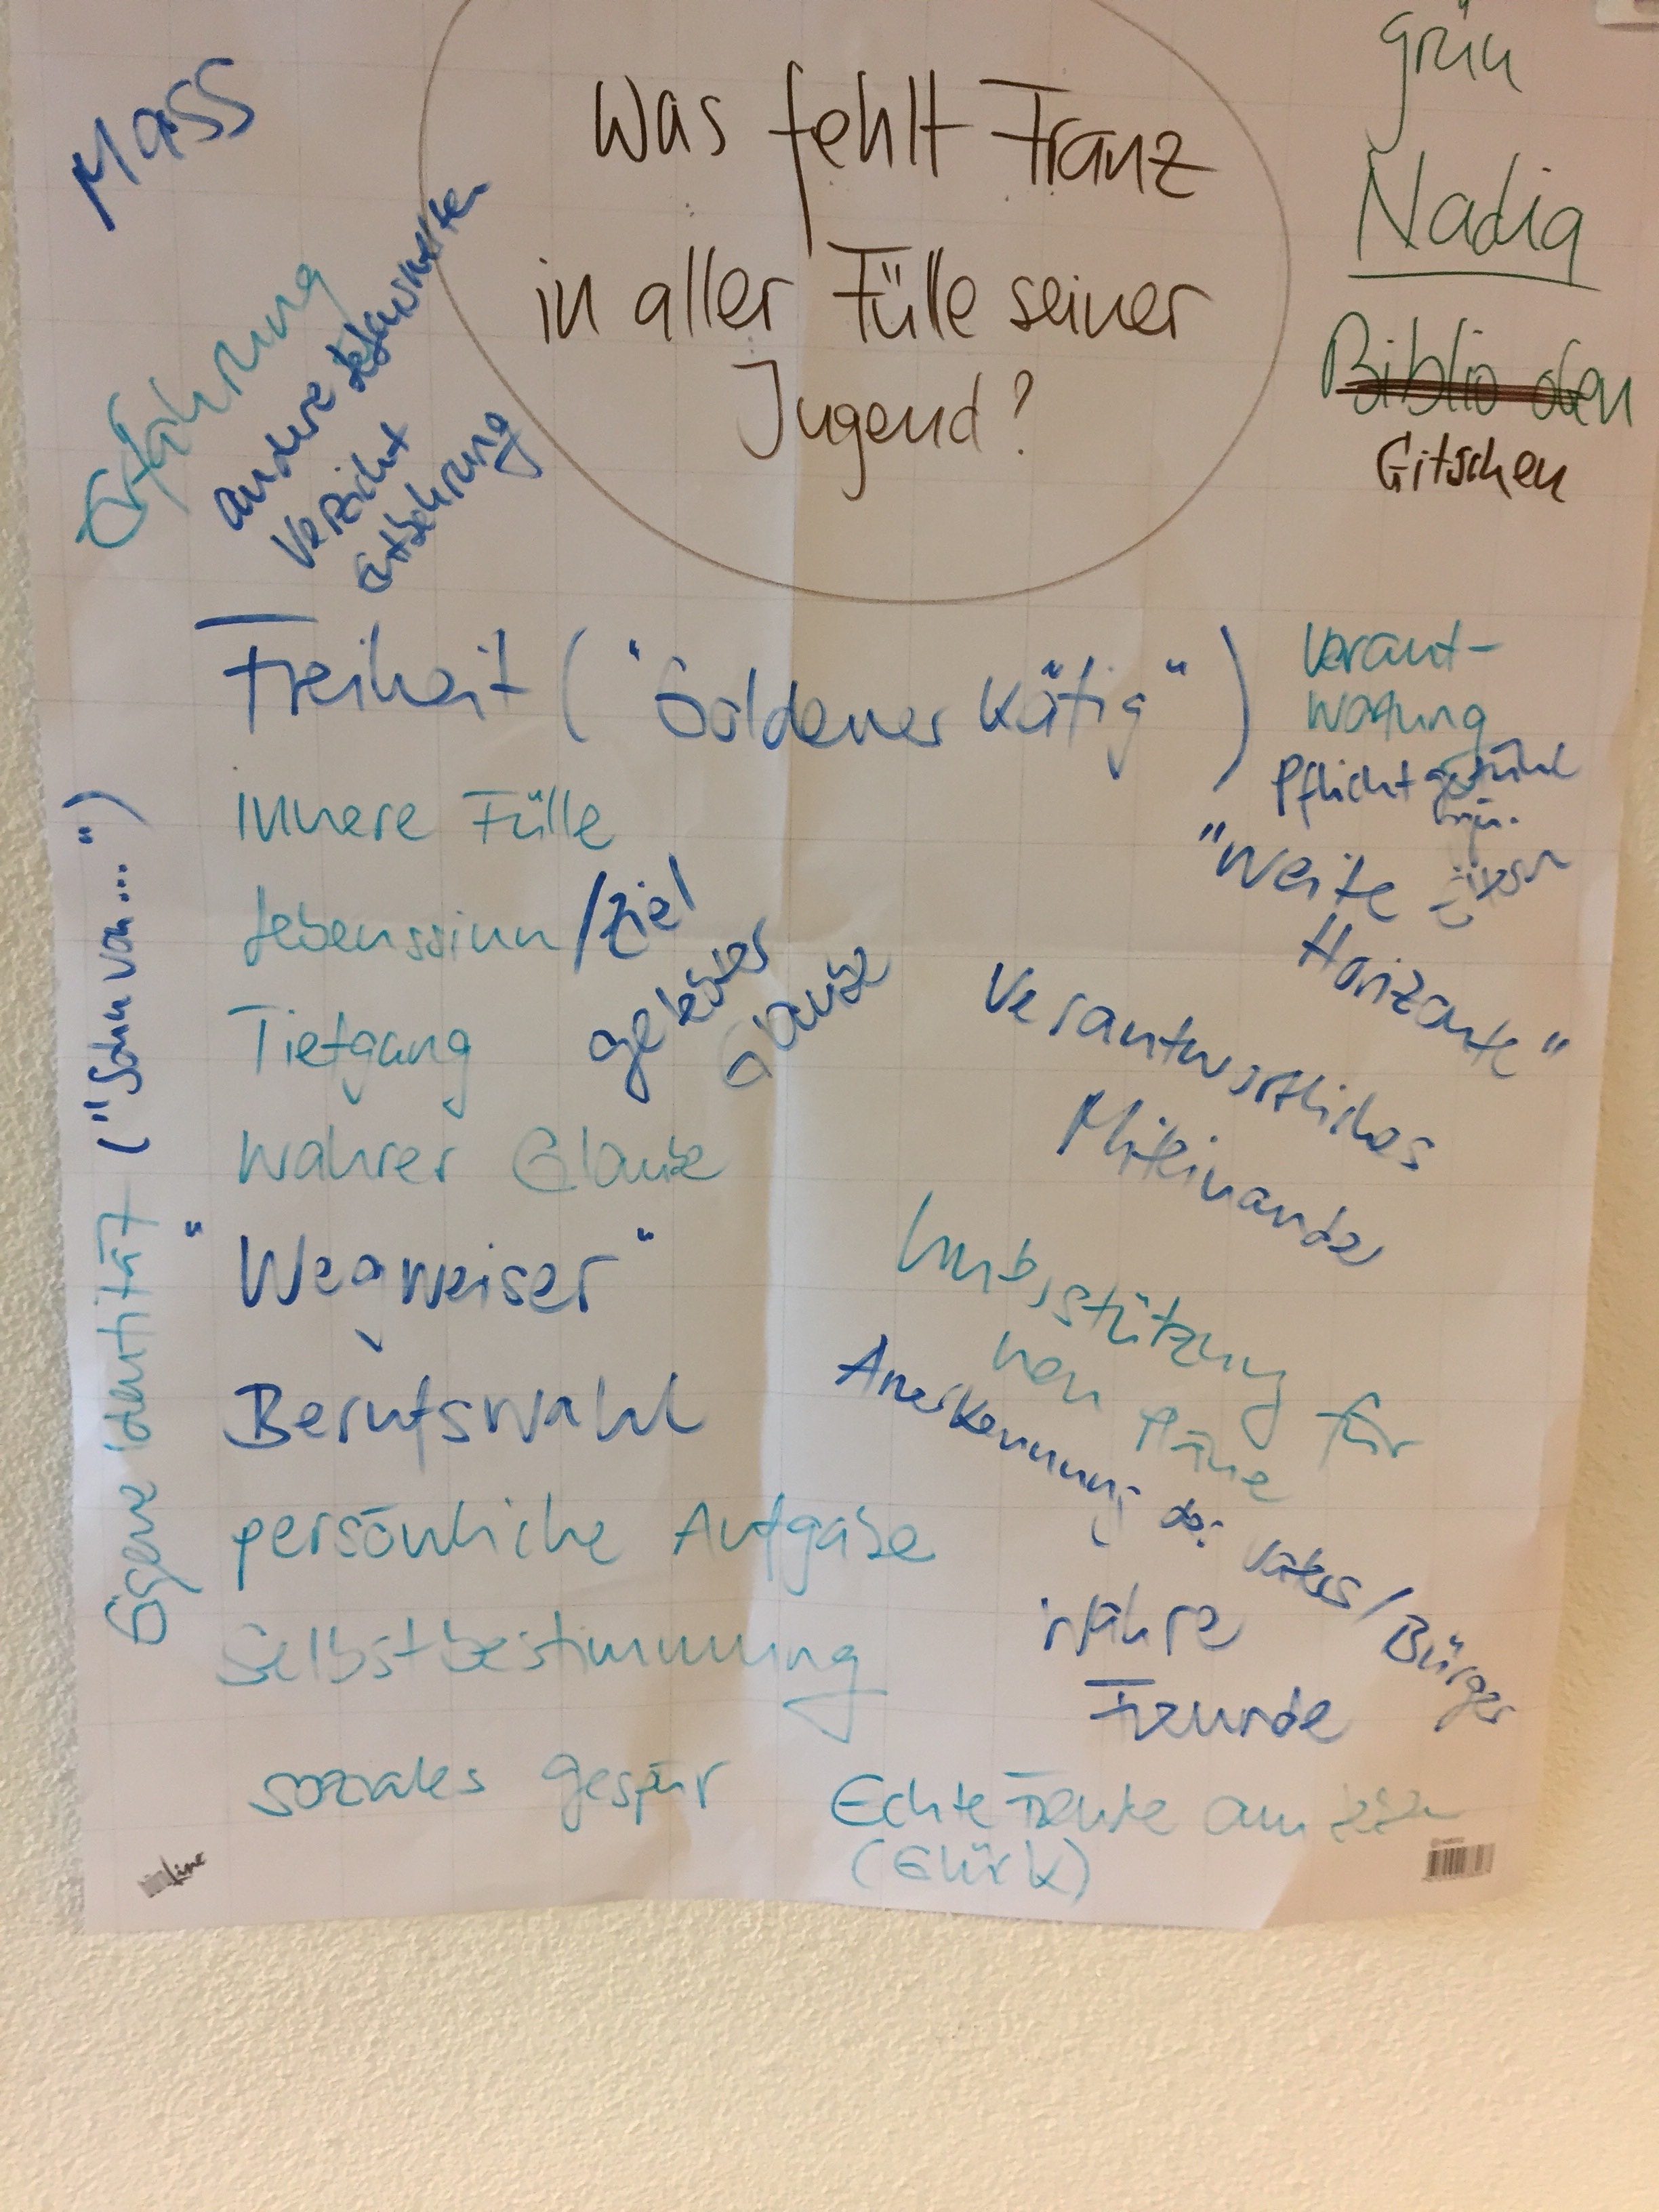 Was fehlt Franz
in aller Fülle seiner
Jugend?
grün
Nadia
Biblio oben
Gitschen
Mass
Erfahrung
andere Lebenswelten
Verzicht
Entbehrung
Freiheit ("Goldener Käfig")
Innere Fülle
Lebenssinn/Ziel
Tiefgang
gelebter
Glaube
Wahrer Glaube
"Wegweiser"
Berufswahl
persönliche Aufgabe
Selbstbestimmung
soziales gespür
Eigene Identität ("Sohn von...")
Verant-
wortung
Pflichtgefühl
"Weite
Horizonte"
Verantwortliches
Miteinander
Unterstützung für
von Pläne
Anerkennung des Vaters/Bürger
wahre
Freunde
Echte Freude am Leben
(Glück)